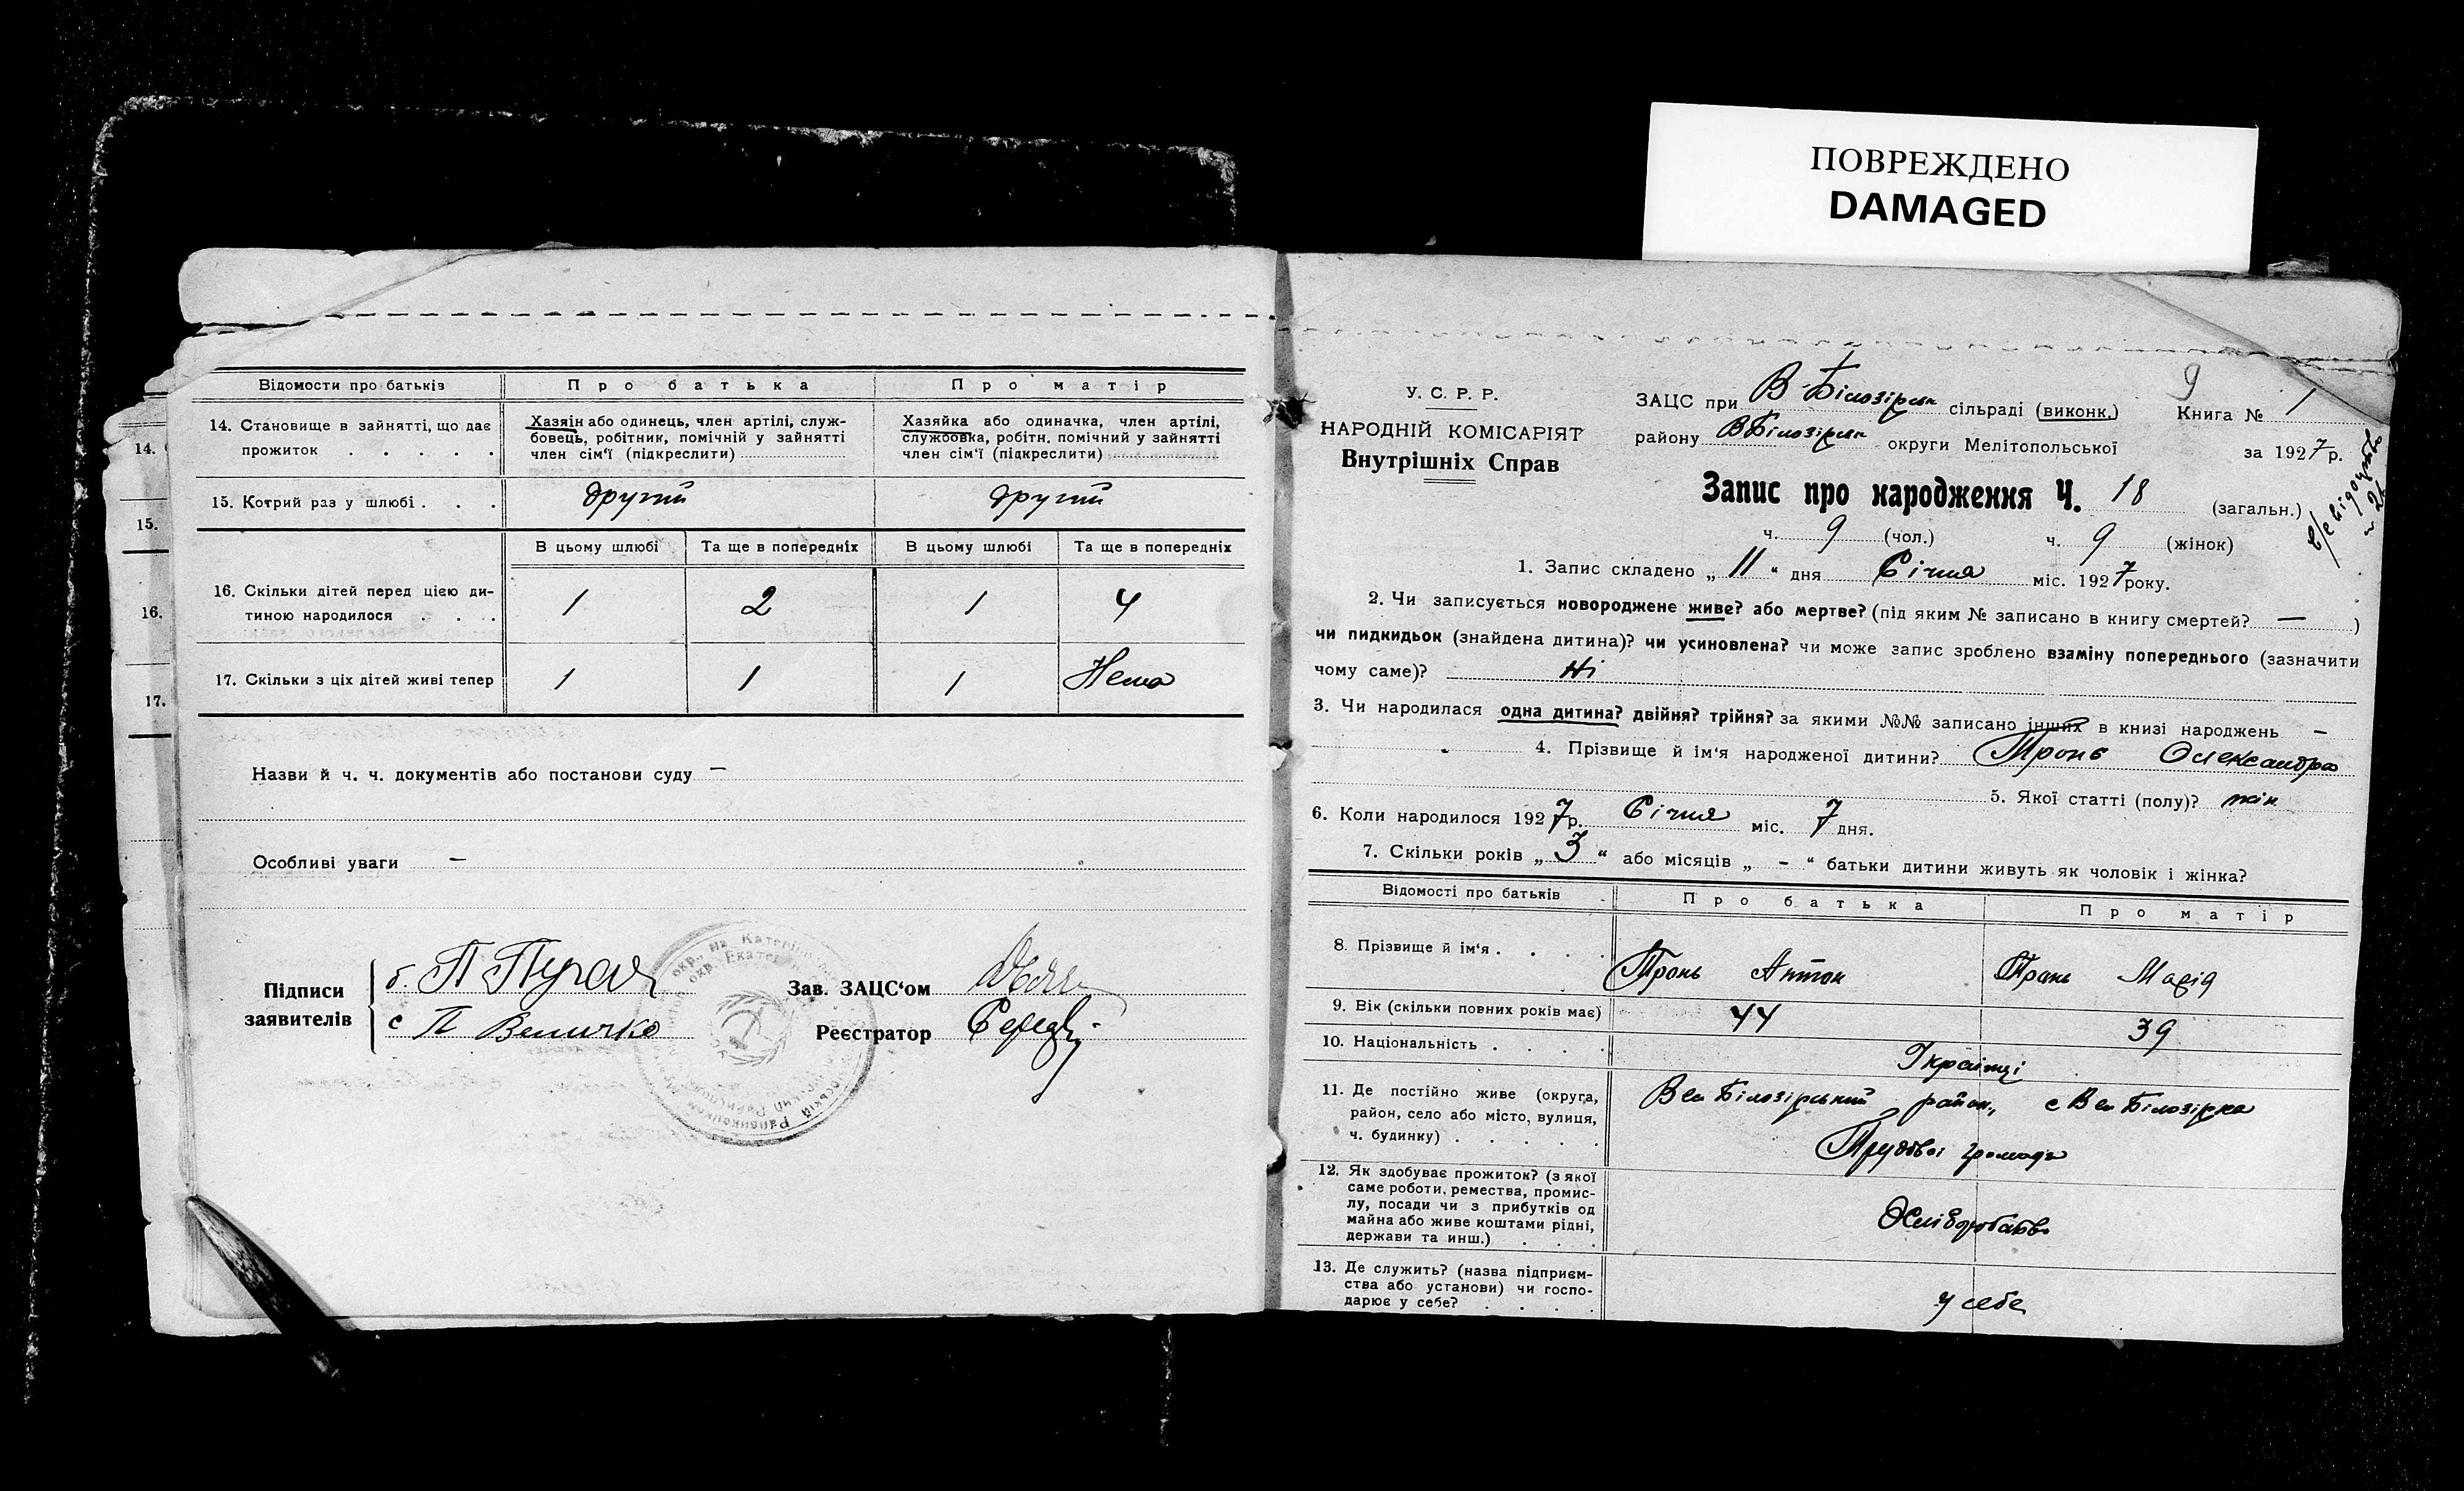 ПОВРЕЖДЕНО
DAMAGED
Відомости про батьків
Про батька
Про матір
14. Становище в зайнятті, що дає
прожиток . . . . .
Хазяін або одинець, член артілі, служ-
бовець, робітник, помічній у зайнятті
член сім'ї (підкреслити)
Хазяйка або одиначка, член артілі,
службовка, робітн. помічний у зайнятті
член сім'ї (підкреслити)
14.
15. Котрий раз у шлюбі . . .
другий
другий
15.
В цьому шлюбі
Та ще в попередніх
В цьому шлюбі
Та ще в попередніх
16. Скільки дітей перед цією ди-
тиною народилося . . .
1
2
1
4
16.
17. Скільки з ціх дітей живі тепер
1
1
1
Нема
17.
Назви й ч. ч. документів або постанови суду —
Особливі уваги —
Підписи
заявителів
б. П
с П Величко
Зав. ЗАЦС'ом
Реєстратор
У. С. Р. Р.
НАРОДНІЙ КОМІСАРІЯТ
Внутрішніх Справ
9
ЗАЦС при В-Білозірск сільраді (виконк.) Книга № 1
району ВБілозірск округи Мелітопольської за 1927р.
Запис про народження Ч. 18 (загальн.)
ч. 9 (чол.) ч. 9 (жінок)
1. Запис складено „11“ дня Січня міс. 1927року.
2. Чи записується новороджене живе? або мертве? (під яким № записано в книгу смертей? — )
чи пидкидьок (знайдена дитина)? чи усиновлена? чи може запис зроблено взаміну попереднього (зазначити
чому саме)? Ні
3. Чи народилася одна дитина? двійня? трійня? за якими №№ записано інших в книзі народжень —
4. Прізвище й ім'я народженої дитини? Тронь Олександра
5. Якої статті (полу)? жін
6. Коли народилося 1927р. Січня міс. 7 дня.
7. Скільки років „3“ або місяців „-“ батьки дитини живуть як чоловік і жінка?
Відомості про батьків
Про батька
Про матір
8. Прізвище й ім'я . . . .
Тронь Антон
Тронь Марія
9. Вік (скільки повних років має)
44
39
10. Національність . . . .
Українці
11. Де постійно живе (округа,
район, село або місто, вулиця,
ч. будинку) . . . . .
Вел Білозірський район, с Вел Білозірка
Трудової громади
12. Як здобуває прожиток? (з якої
саме роботи, ремества, промис-
лу, посади чи з прибутків од
майна або живе коштами рідні,
держави та инш.) . . .
Хліборобство
13. Де служить? (назва підприєм-
ства або установи) чи госпо-
дарює у себе? . . . .
у себе